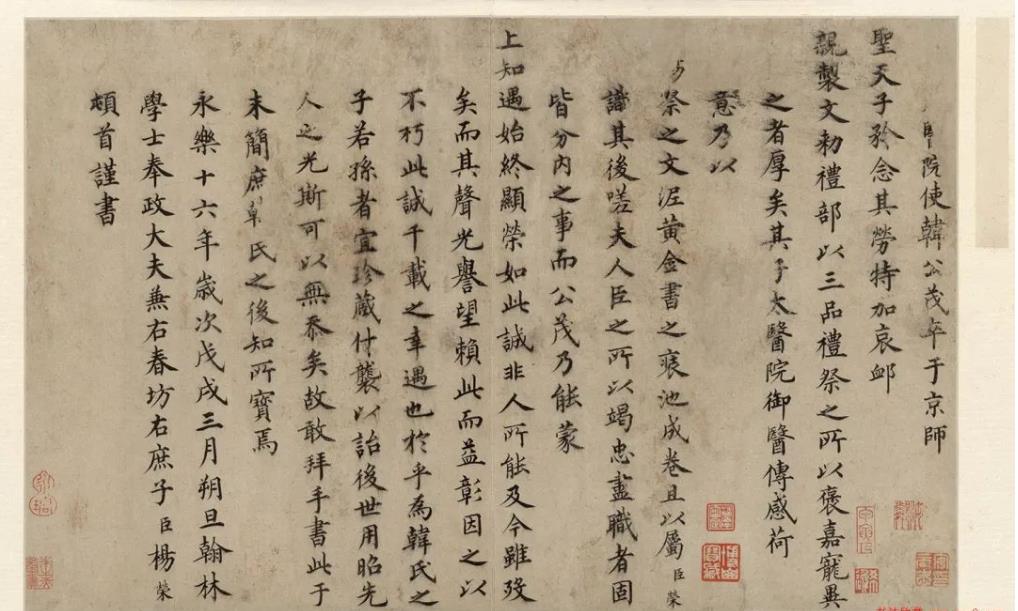 院使韓公茂卒于京師
聖天子於念其勞特加哀卹
親製文勑禮部以三品禮祭之所以褒嘉寵異
之者厚矣其子太醫院御醫傳感荷
意乃以
祭之文泥黃金書之裝池成卷且以屬臣榮
識其後嗟夫人臣之所以竭忠盡職者固
皆分內之事而公茂乃能蒙
上知遇始終顯榮如此誠非人所能及今雖歿
矣而其聲光譽望賴此而益彰因之以
不朽此誠千載之幸遇也於乎為韓氏之
子若孫者宜珍藏什襲以詒後世用昭先
人之光斯可以無忝矣故敢拜手書此于
末簡庶韓氏之後知所寶焉
永樂十六年歲次戊戌三月朔旦翰林
學士奉政大夫兼右春坊右庶子臣楊榮
頓首謹書